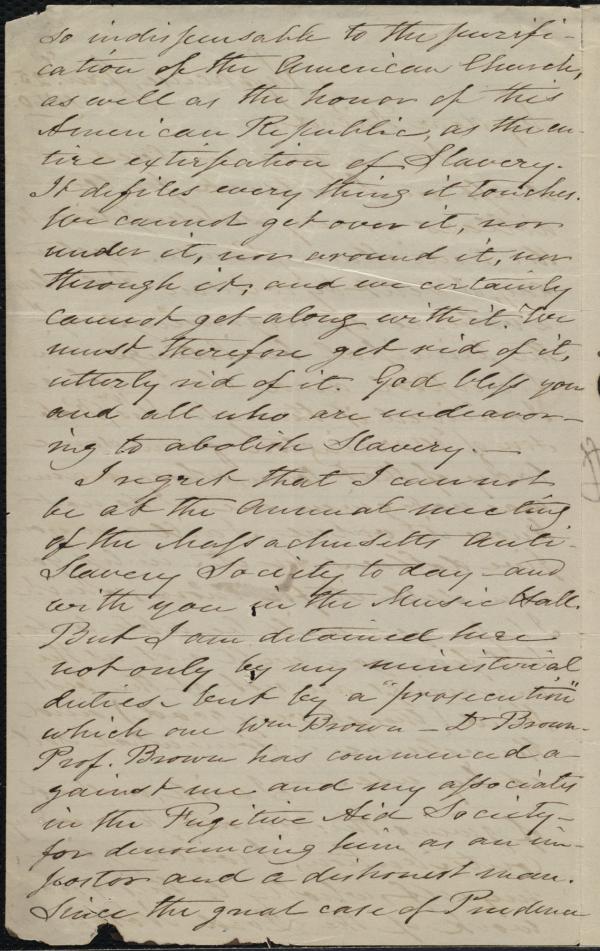 so indispensable to the purifi-
cation of the American Church,
as well as the honor of this
American Republic, as the en-
tire extirpation of Slavery.
It defiles every thing it touches.
We cannot get over it, nor
under it, nor around it, nor
through it; and we certainly
cannot get along with it. We
must therefore get rid of it,
utterly rid of it. God bless you
and all who are endeavor-
ing to abolish Slavery. —
I regret that I cannot
be at the Annual meeting
of the Massachusetts Anti-
Slavery Society to day - and
with you in the Music Hall.
But I am detained here
not only by my ministerial
duties - but by a "prosecution"
which one Wm Brown - Dr Brown -
Prof. Brown has commenced a-
gainst me and my associates
in the Fugitive Aid Society -
for denouncing him as an im-
postor and a dishonest man.
Since the great case of Prudence